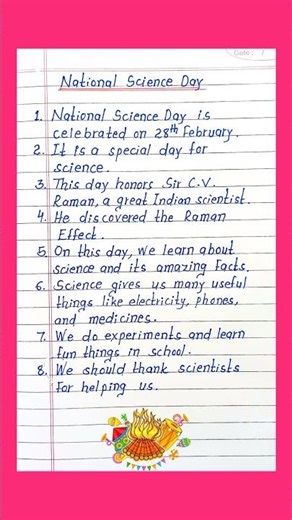 Date: 7
National Science Day
1. National Science Day is
celebrated on 28th February.
2. It is a special day for
science.
3. This day honors Sir C.V.
Raman, a great Indian scientist.
4. He discovered the Raman
Effect.
5. On this day, we learn about
science and its amazing facts.
6. Science gives us many useful
things like electricity, phones,
and medicines.
7. We do experiments and learn
fun things in school.
8. We should thank scientists
for helping us.